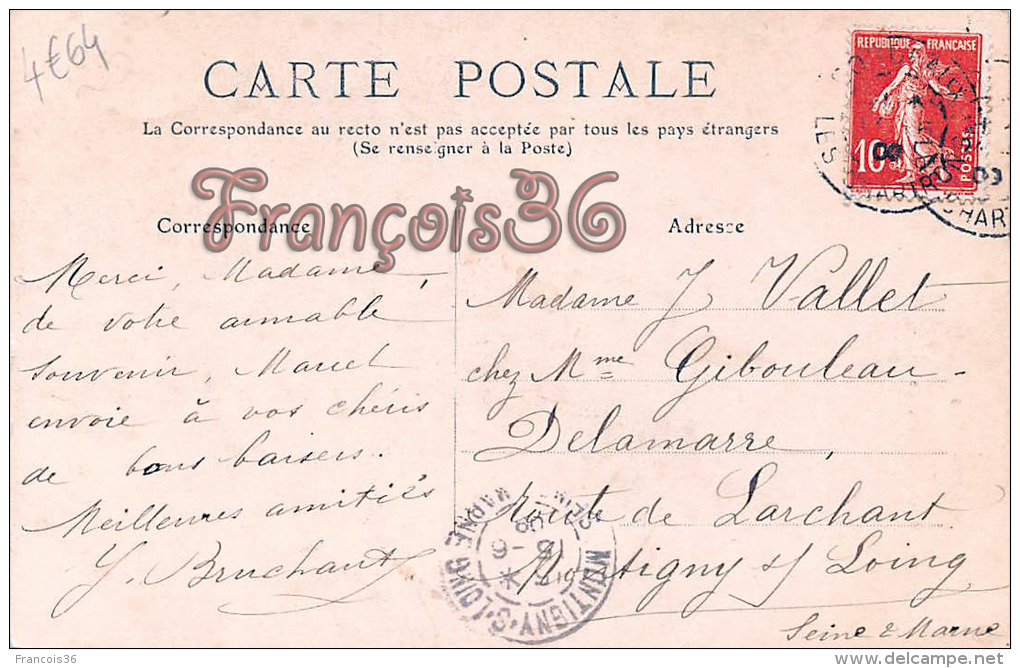 4€64
CARTE POSTALE
La Correspondance au recto n'est pas acceptée par tous les pays étrangers
(Se renseigner à la Poste)
REPUBLIQUE FRANÇAISE
10c
POSTES
LES
CHART
François36
Correspondance
Merci, Madame,
de votre aimable
souvenir, Marcel
envoie à vos chéris
de bons baisers.
Meilleures amitiés
Y. Bruchaut
Adresse
Madame J Vallet
chez Mme Gibouleau-
Delamarre,
Route de Larchant
Montigny s/ Loing
Seine & Marne
MONTIGNY-S-LOING
SEINE-
MARNE
François36
delcampe.net